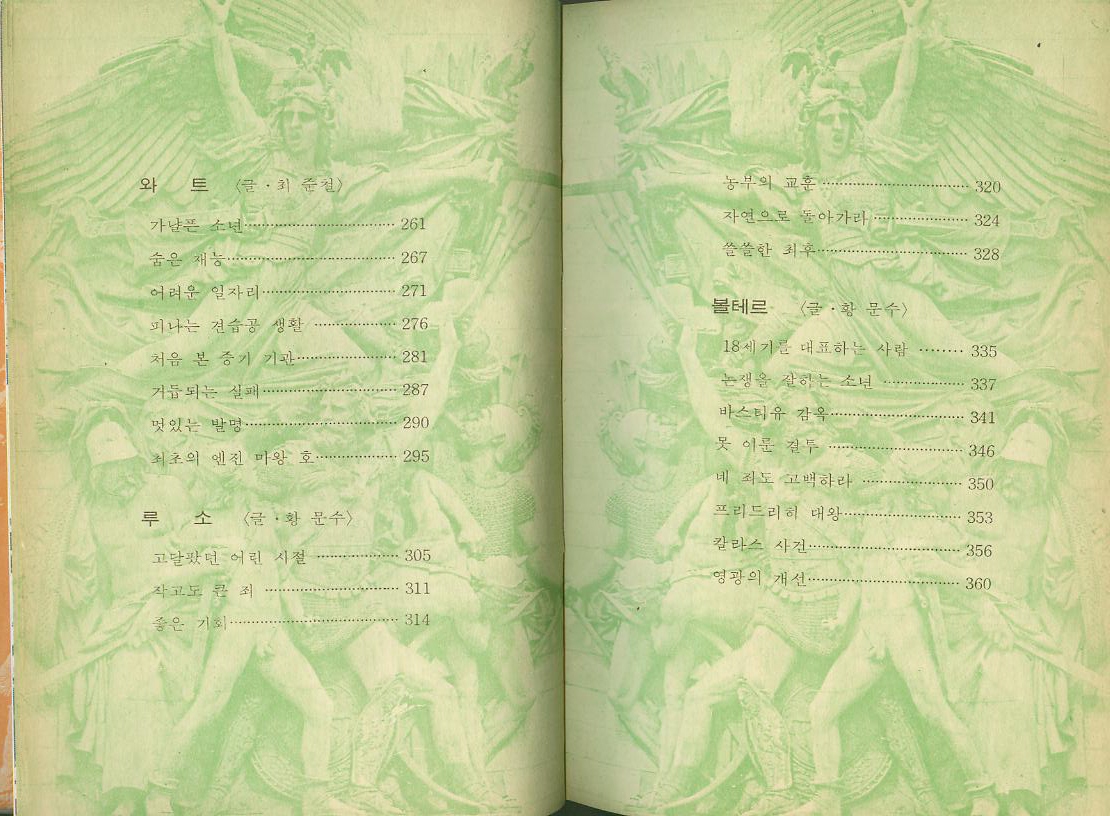 와 트 〈글·최 준철〉
가냘픈 소년 261
숨은 재능 267
어려운 일자리 271
피나는 견습공 생활 276
처음 본 증기 기관 281
거듭되는 실패 287
멋있는 발명 290
최초의 엔진 마왕 호 295
루 소 〈글·황 문수〉
고달팠던 어린 시절 305
작고도 큰 죄 311
좋은 기회 314
농부의 교훈 320
자연으로 돌아가라 324
쓸쓸한 최후 328
볼테르 〈글·황 문수〉
18세기를 대표하는 사람 335
논쟁을 잘하는 소년 337
바스티유 감옥 341
못 이룬 결투 346
네 죄도 고백하라 350
프리드리히 대왕 353
칼라스 사건 356
영광의 개선 360